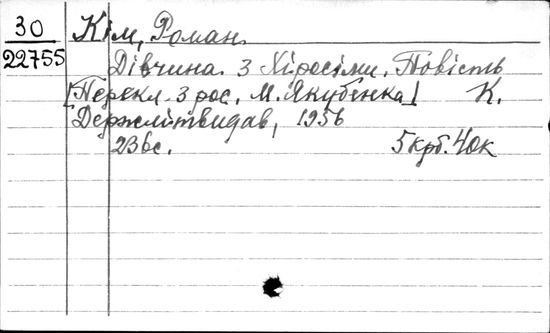 30
22755
Кім, Роман.
Дівчина з Хіросіми. Повість
[Перекл. з рос. М. Якубенка] К.
Держлітвидав, 1956
236с. 5крб. 40к